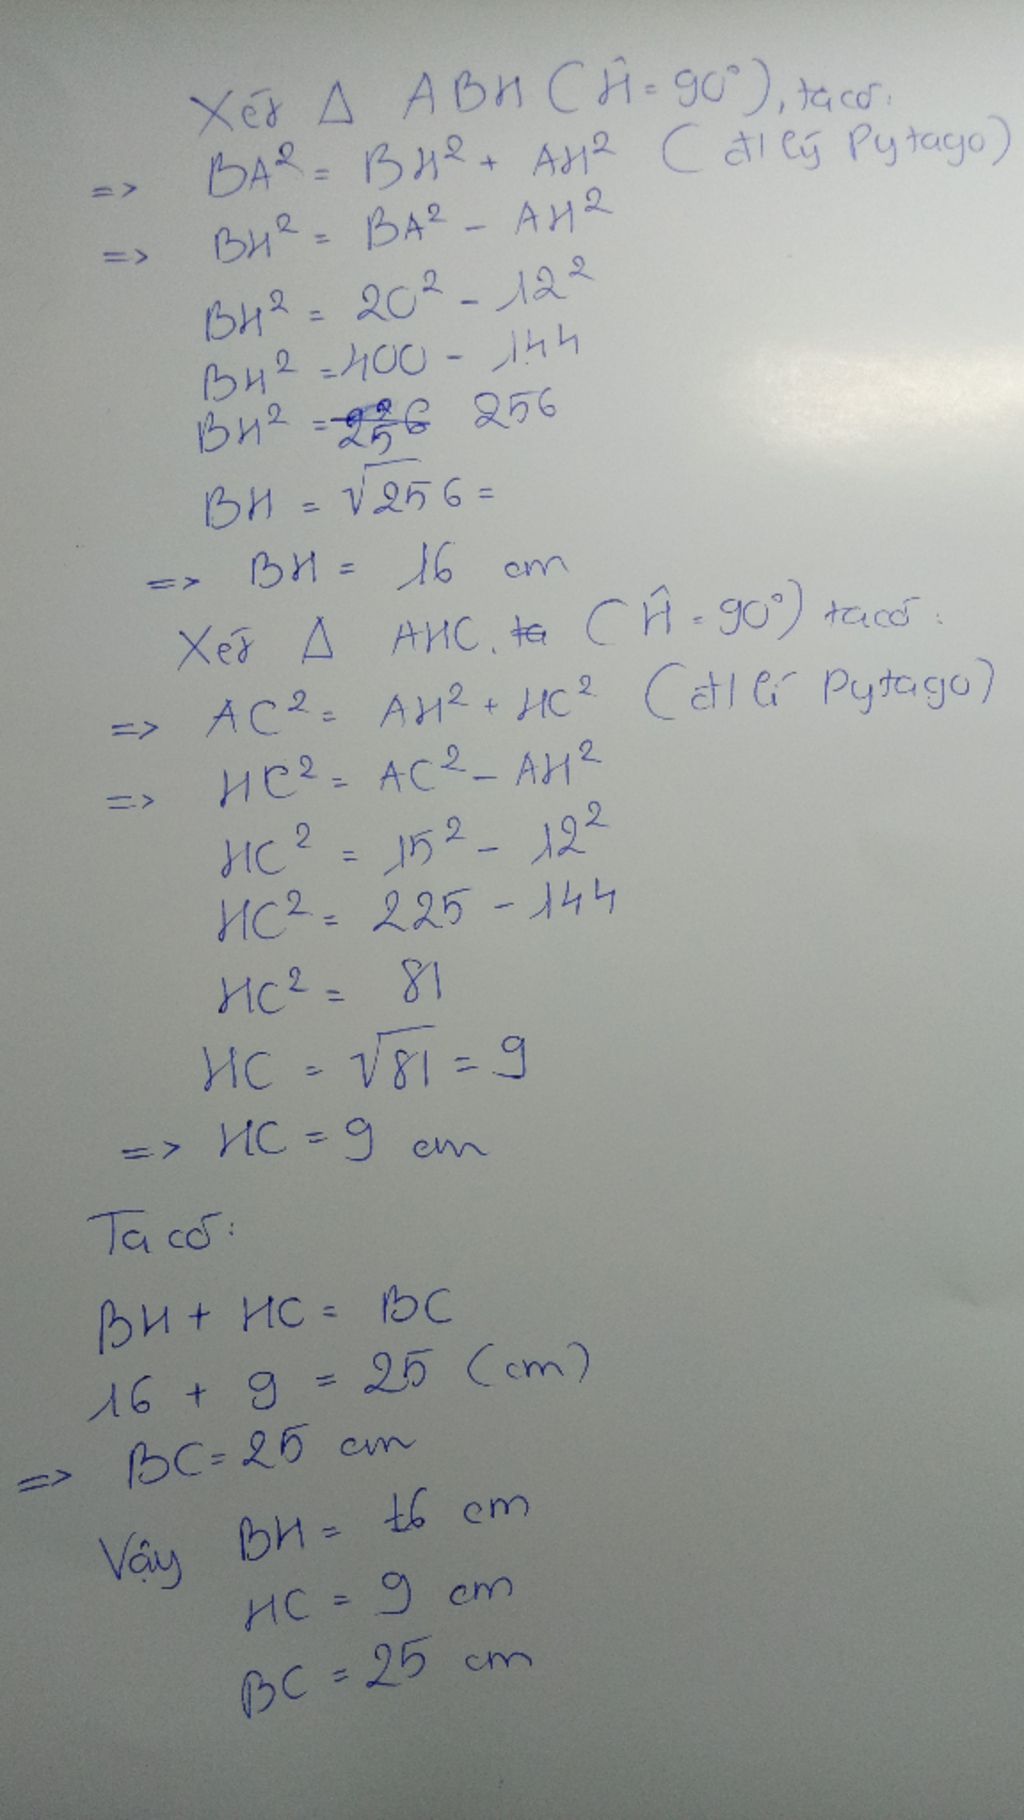 Xét Δ ABH (Ĥ = 90°), ta có:
=> BA² = BH² + AH² (đl lý Pytago)
=> BH² = BA² - AH²
BH² = 20² - 12²
BH² = 400 - 144
BH² = 256
BH = √256 =
=> BH = 16 cm
Xét Δ AHC, (Ĥ = 90°) ta có:
=> AC² = AH² + HC² (đl lí Pytago)
=> HC² = AC² - AH²
HC² = 15² - 12²
HC² = 225 - 144
HC² = 81
HC = √81 = 9
=> HC = 9 cm
Ta có:
BH + HC = BC
16 + 9 = 25 (cm)
=> BC = 25 cm
Vậy BH = 16 cm
HC = 9 cm
BC = 25 cm